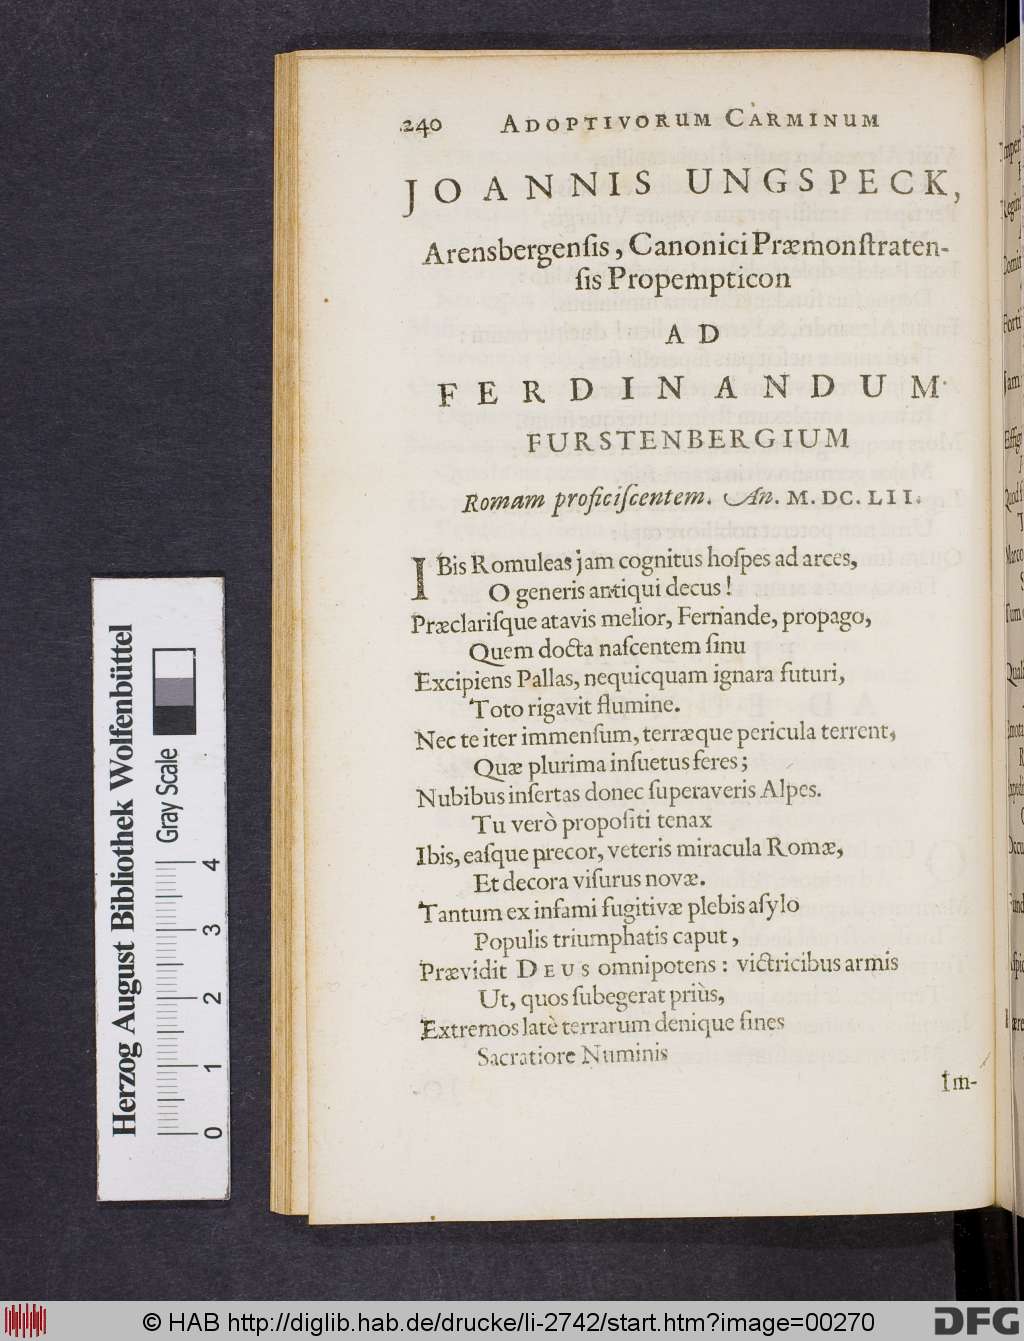 240 ADOPTIVORUM CARMINUM
JOANNIS UNGSPECK,
Arensbergenſis, Canonici Præmonſtraten-
ſis Propempticon
AD
FERDINANDUM
FURSTENBERGIUM
Romam proficiſcentem. An. M. DC. LII.
IBis Romuleas jam cognitus hoſpes ad arces,
O generis antiqui decus!
Præclariſque atavis melior, Fernande, propago,
Quem docta naſcentem ſinu
Excipiens Pallas, nequicquam ignara futuri,
Toto rigavit flumine.
Nec te iter immenſum, terræque pericula terrent,
Quæ plurima inſuetus feres;
Nubibus inſertas donec ſuperaveris Alpes.
Tu verò propoſiti tenax
Ibis, eaſque precor, veteris miracula Romæ,
Et decora viſurus novæ.
Tantum ex infami fugitivæ plebis aſylo
Populis triumphatis caput,
Prævidit DEUS omnipotens: victricibus armis
Ut, quos ſubegerat priùs,
Extremos latè terrarum denique fines
Sacratiore Numinis
Im-
Herzog August Bibliothek Wolfenbüttel
Gray Scale
0 1 2 3 4
© HAB http://diglib.hab.de/drucke/li-2742/start.htm?image=00270
DFG